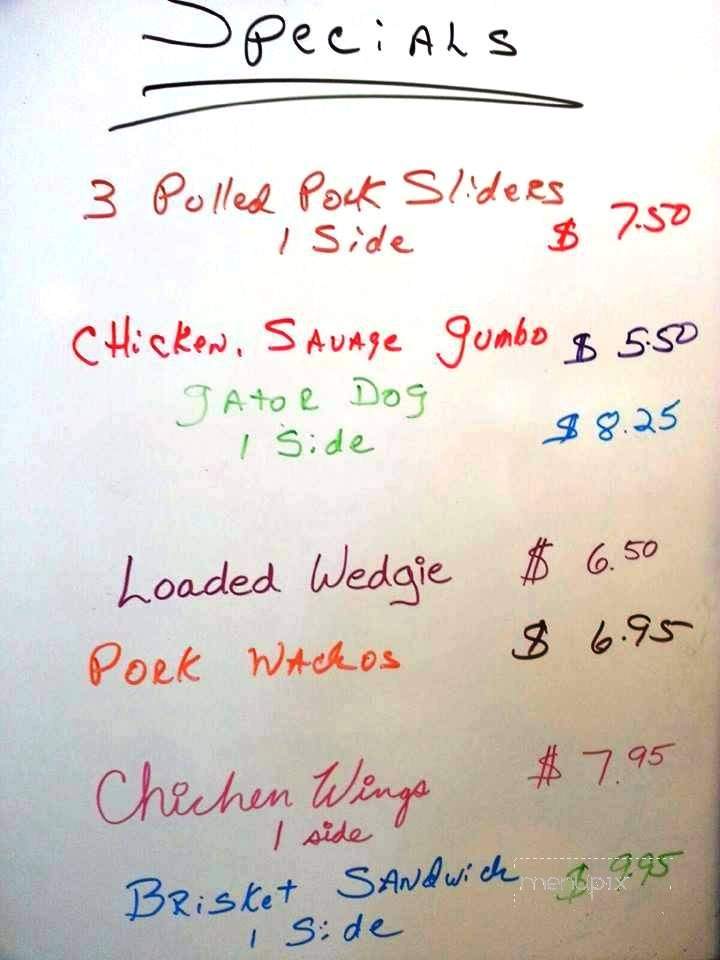 Specials
3 Pulled Pork Sliders
1 Side $ 7.50
Chicken, Sauage gumbo $ 5.50
gator Dog
1 Side $ 8.25
Loaded Wedgie $ 6.50
Pork Wachos $ 6.95
Chichen Wings $ 7.95
1 side
Brisket Sandwich $ 9.95
1 Side
menupix